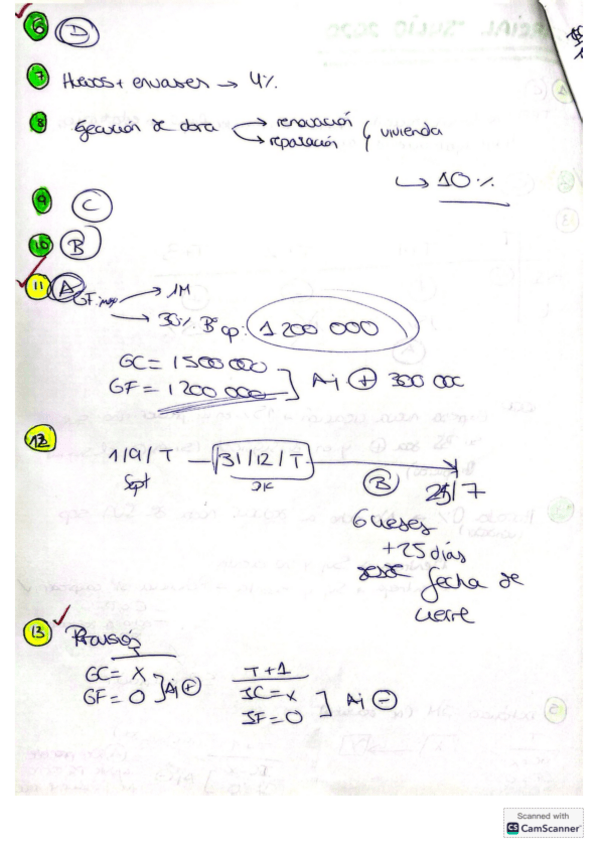 6 D
7 Huevos + envases → 4%.
8 Ejecución de obra → renovación
→ reparación
vivienda
↳ 10%
9 C
10 B
11 A
GF → 1M
→ 30% Bº op: 1 200 000
GC = 1500 000
GF = 1200 000 ] Aj + 300 000
12
1/9/T — 31/12/T → 25/7
Sept
B
6 meses
+25 días
desde fecha de
cierre
13 Provisión
GC = X
GF = 0 ] Aj +
T+1
IC = X
IF = 0 ] Aj −
Scanned with
CS CamScanner